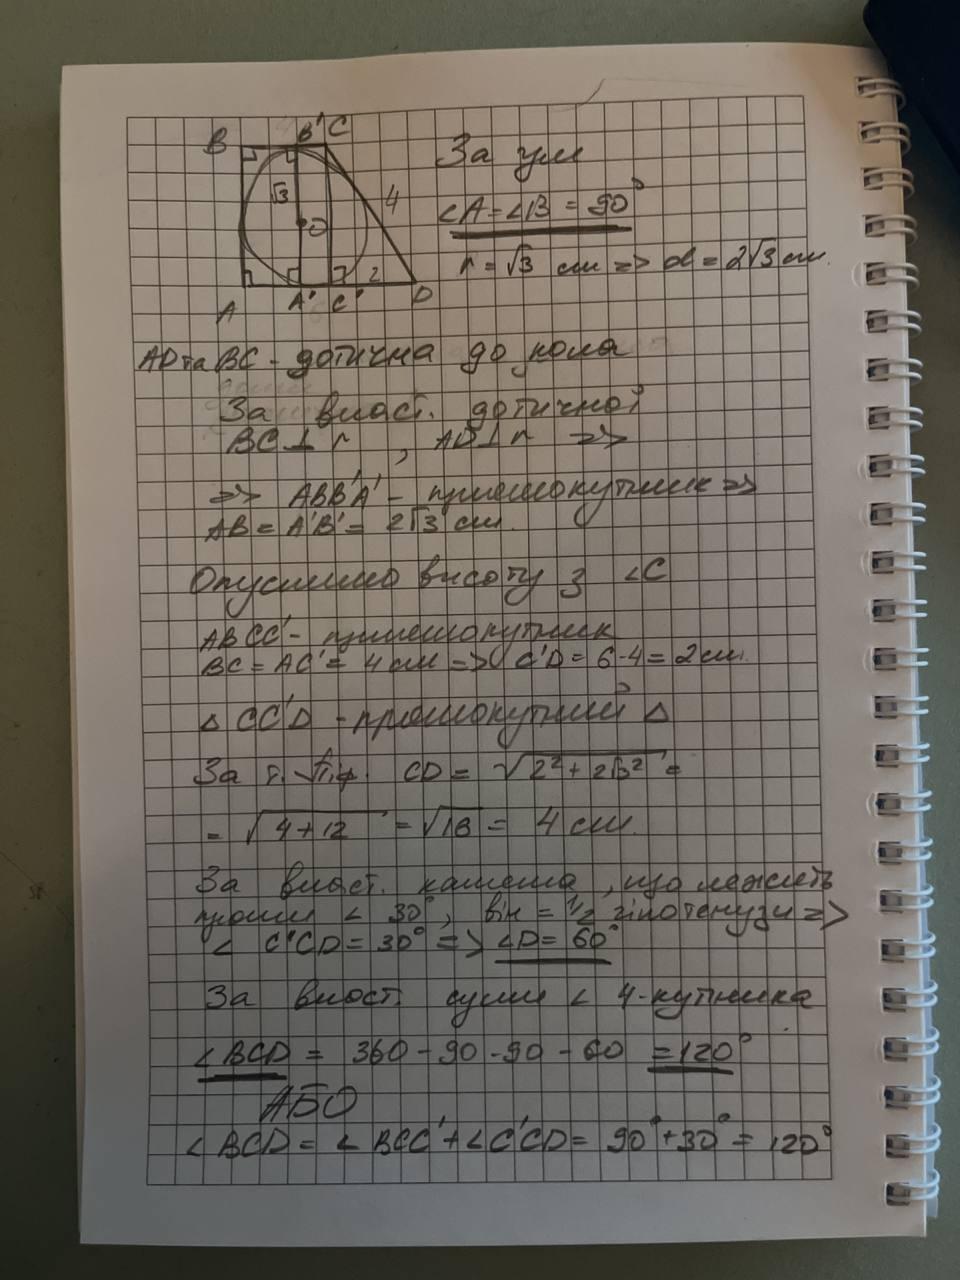 B B' C
За ум
√3 4
∠A=∠B = 90°
O
r = √3 см => d = 2√3 см.
2
A A' C' D
AD та BC - дотична до кола
За власт. дотичної
BC⊥r , AD⊥r =>
=> ABB'A' - прямокутник =>
AB = A'B' = 2√3 см.
Опустимо висоту з ∠C
ABCC' - прямокутник
BC = AC' = 4 см => C'D = 6-4 = 2 см.
△ CC'D - прямокутний △
За т. Піф. CD = √2² + 2√3² =
= √4+12 = √16 = 4 см.
За власт. катета, що лежить
проти ∠ 30°, він = 1/2 гіпотенузи =>
∠ C'CD = 30° => ∠D = 60°
За власт. суми ∠ 4-кутника
∠BCD = 360 - 90 - 90 - 60 = 120°
АБО
∠BCD = ∠BCC' + ∠C'CD = 90° + 30° = 120°